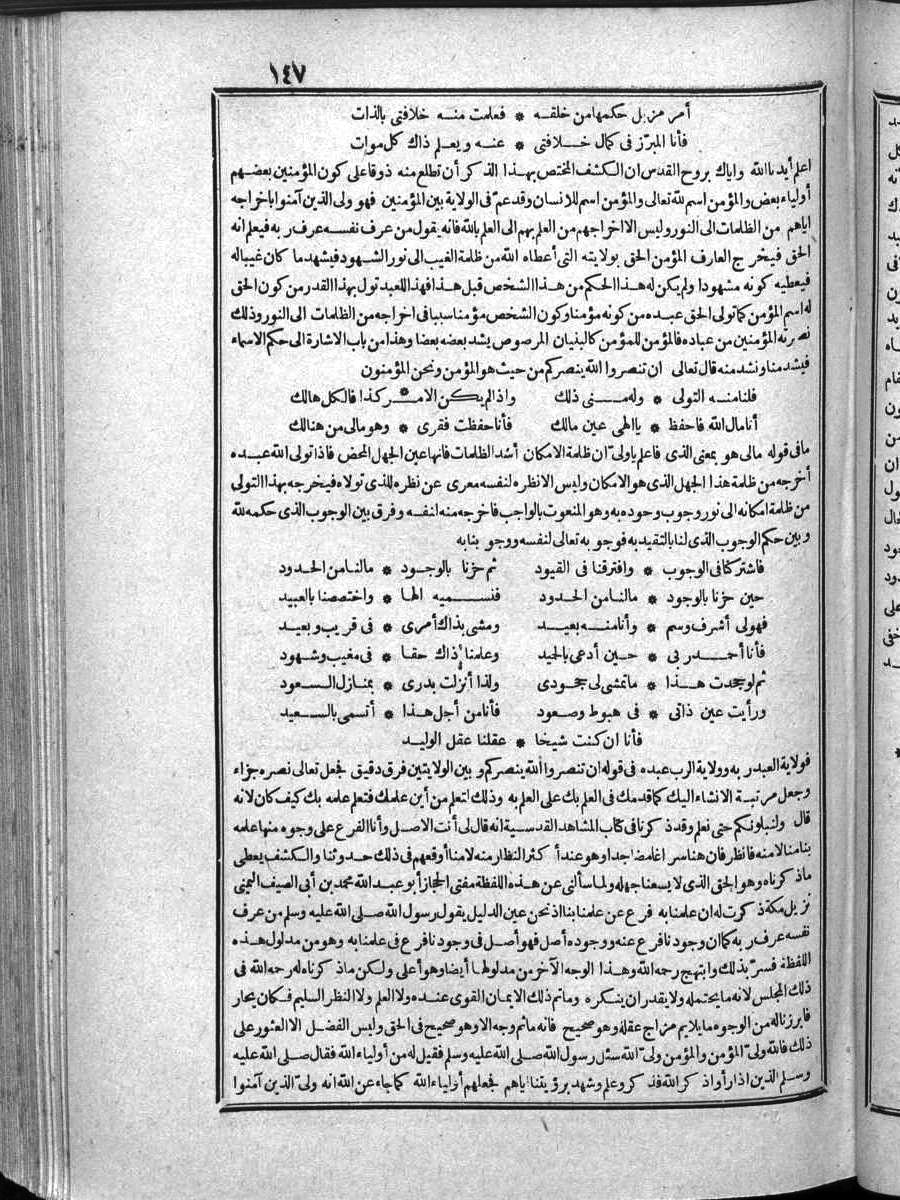 ١٤٧
أمر مزيل حكمها من خلقه * فعلمت منه خلافتي بالذات
فأنا المبرّز في كمال خلافتي * عنه ويعلم ذاك كل موات
اعلم أيدنا الله واياك بروح القدس ان الكشف المختص بهذا الذكر أن تطلع منه ذوقا على كون المؤمنين بعضهم
أولياء بعض والمؤمن اسم لله تعالى والمؤمن اسم للانسان وقد عمّ في الولاية بين المؤمنين فهو ولى الذين آمنوا باخراجه
اياهم من الظلمات الى النور وليس الا اخراجهم من العلم بهم الى العلم بالله فانه يقول من عرف نفسه عرف ربه فيعلم انه
الحق فيخرج العارف المؤمن الحق بولايته التي أعطاه الله من ظلمة الغيب الى نور الشهود فيشهد ما كان غيبا له
فيعطيه كونه مشهودا ولم يكن له هذا الحكم من هذا الشخص قبل هذا فهذا للعبد تول بهذا القدر من كون الحق
له اسم المؤمن كما تولى الحق عبده من كونه مؤمنا وكون الشخص مؤمنا سببا في اخراجه من الظلمات الى النور وذلك
نصرته المؤمنين من عباده فالمؤمن للمؤمن كالبنيان المرصوص يشد بعضه بعضا وهذا من باب الاشارة الى حكم الاسماء
فيشد منا ونشد منه قال تعالى ان تنصروا الله ينصركم من حيث هو المؤمن ونحن المؤمنون
فلنا منه التولى * وله منى ذلك واذا لم يكن الامر * كذا فالكل هالك
أنا مال الله فاحفظ * يا الهي عين مالك فأنا حفظت فقرى * وهو مالى من هنالك
ما في قوله مالى هو بمعنى الذى فاعلم ياولىّ ان ظلمة الامكان أشد الظلمات فانها عين الجهل المحض فاذا تولى الله عبده
أخرجه من ظلمة هذا الجهل الذى هو الامكان وليس الا نظره لنفسه معرى عن نظره للذى تولاه فيخرجه بهذا التولى
من ظلمة امكانه الى نور وجوب وجوده به وهو المنعوت بالواجب فاخرجه منه لنفسه وفرق بين الوجوب الذى حكمه لله
وبين حكم الوجوب الذى لنا بالتقيد به فوجوبه تعالى لنفسه ووجوبنا به
فاشتركنا في الوجوب * وافترقنا في القيود ثم حزنا بالوجود * مالنا من الحدود
حين حزنا بالوجود * مالنا من الحدود فنسميه الها * واختصصنا بالعبيد
فهو لى أشرف وسم * وأنا منه بعيد ومشى بذاك أمرى * في قريب وبعيد
فأنا أحمد ربى * حين أدعى بالحميد وعلمنا ذاك حقا * في مغيب وشهود
ثم لو جحدت هذا * ما تمشى لى جحودى ولذا أنزلت بدرى * بمنازل السعود
ورأيت عين ذاتى * في هبوط وصعود فأنا من أجل هذا * أتسمى بالسعيد
فأنا ان كنت شيخا * عقلنا عقل الوليد
فولاية العبد ربه وولاية الرب عبده في قوله ان تنصروا الله ينصركم وبين الولايتين فرق دقيق فجعل تعالى نصره جزاء
وجعل مرتبة الانشاء اليك كما قدمك في العلم بك على العلم به وذلك لتعلم من أين علمك فتعلم علمه بك كيف كان لانه
قال ولنبلونكم حتى نعلم وقد ذكرنا في كتاب المشاهد القدسية انه قال لى أنت الاصل وأنا الفرع على وجوه منها علمه
بنا منا لا منه فانظر فان هنا سر اغامضا جدا وهو عند أكثر النظار منه لا منا أوقعهم في ذلك حدوثنا والكشف يعطى
ماذكرناه وهو الحق الذى لا يسعنا جهله ولما سألنى عن هذه اللفظة مفتى الحجاز أبو عبد الله محمد بن أبى الصيف اليمنى
نزيل مكة ذكرت له ان علمنا به فرع عن علمنا بنا اذ نحن عين الدليل يقول رسول الله صلى الله عليه وسلم من عرف
نفسه عرف ربه كما ان وجودنا فرع عنه ووجوده أصل فهو أصل في وجودنا فرع في علمنا به وهو من مدلول هذه
اللفظة فسرّ بذلك وابتهج رحمه الله وهذا الوجه الآخر من مدلولها أيضا وهو أعلى ولكن ماذكرناه له رحمه الله في
ذلك المجلس لانه ما يحتمله ولا يقدر ان ينكره وما تم ذلك الايمان القوى عنده ولا العلم ولا النظر السليم فكان يحار
فابرزنا له من الوجوه ما يلايم مزاج عقله وهو صحيح فانه ماثم وجه الا وهو صحيح في الحق وليس الفضل الا العثور على
ذلك فالله ولىّ المؤمن والمؤمن ولىّ الله سئل رسول الله صلى الله عليه وسلم فقيل له من أولياء الله فقال صلى الله عليه
وسلم الذين اذا رأوا ذكر الله فذكر وعلم وشهد برؤيتنا اياهم فجعلهم أولياء الله كما جاء عن الله انه ولىّ الذين آمنوا